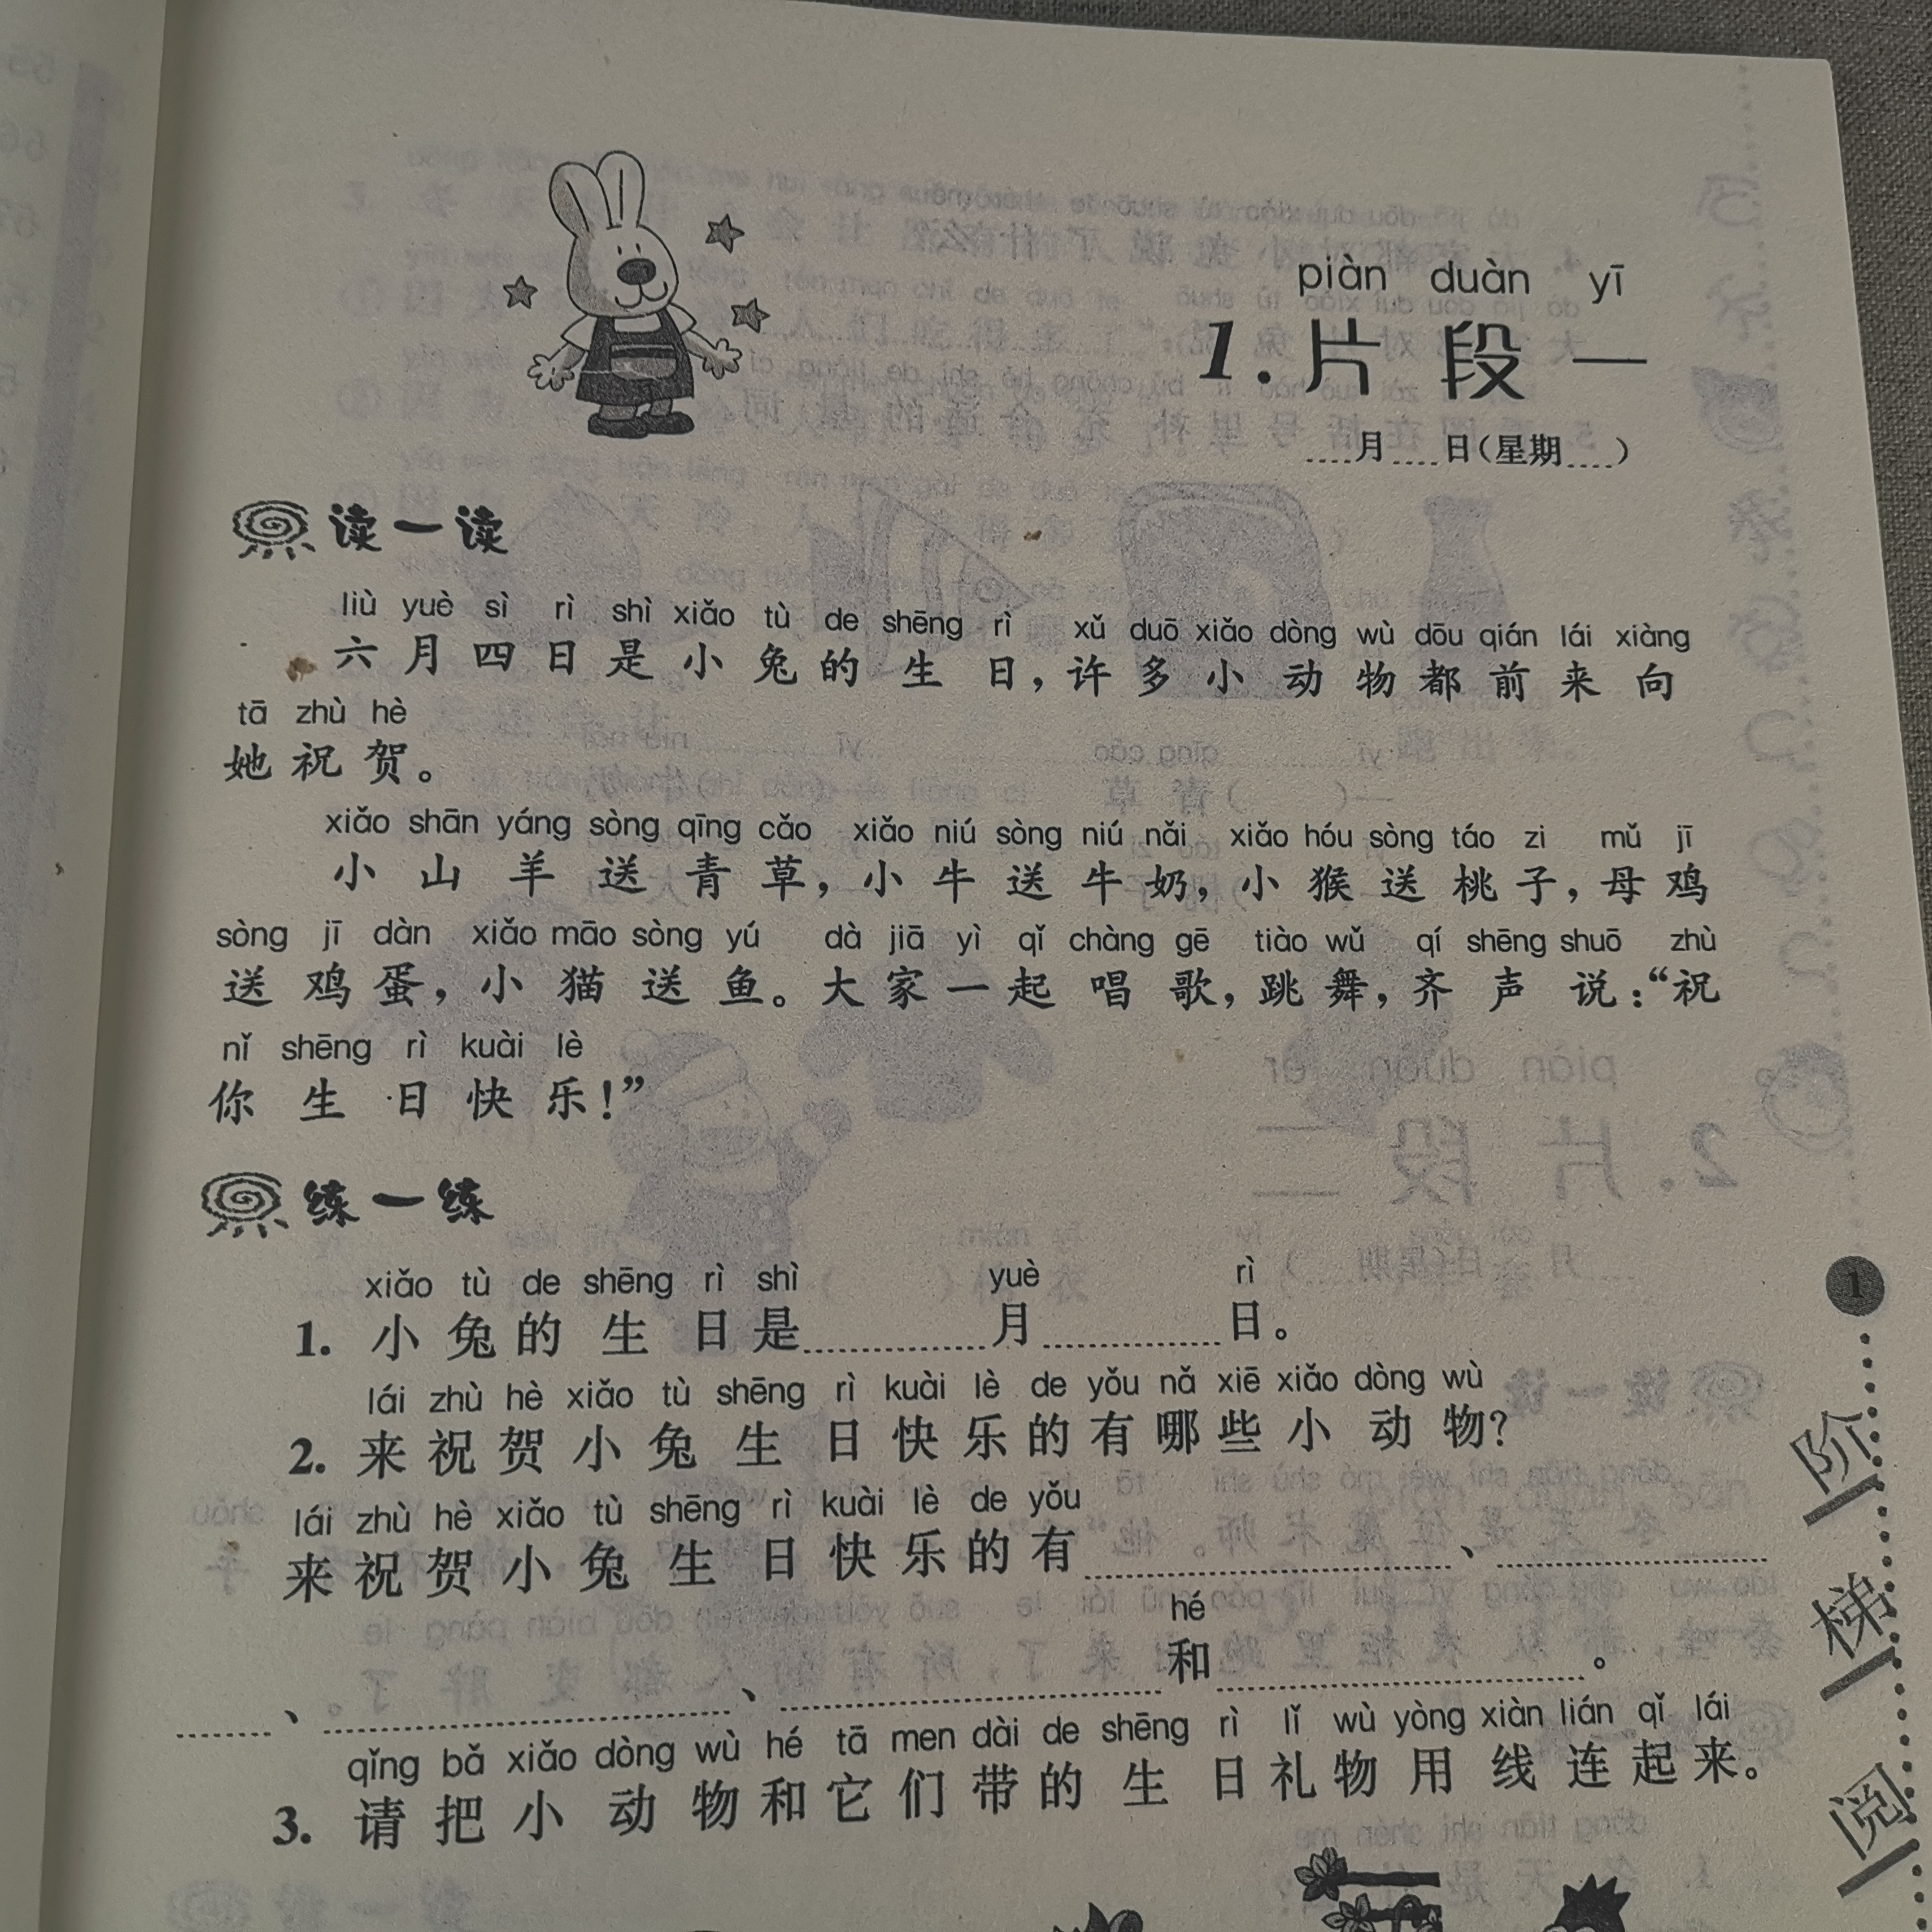 piàn duàn yī
1. 片段一
月 日(星期 )
读一读
liù yuè sì rì shì xiǎo tù de shēng rì xǔ duō xiǎo dòng wù dōu qián lái xiàng
六月四日是小兔的生日，许多小动物都前来向
tā zhù hè
她祝贺。
xiǎo shān yáng sòng qīng cǎo xiǎo niú sòng niú nǎi xiǎo hóu sòng táo zi mǔ jī
小山羊送青草，小牛送牛奶，小猴送桃子，母鸡
sòng jī dàn xiǎo māo sòng yú dà jiā yì qǐ chàng gē tiào wǔ qí shēng shuō zhù
送鸡蛋，小猫送鱼。大家一起唱歌，跳舞，齐声说：“祝
nǐ shēng rì kuài lè
你生日快乐！”
练一练
xiǎo tù de shēng rì shì yuè rì
1. 小兔的生日是 月 日。
lái zhù hè xiǎo tù shēng rì kuài lè de yǒu nǎ xiē xiǎo dòng wù
2. 来祝贺小兔生日快乐的有哪些小动物？
lái zhù hè xiǎo tù shēng rì kuài lè de yǒu
来祝贺小兔生日快乐的有 、
hé
、 、 和 。
qǐng bǎ xiǎo dòng wù hé tā men dài de shēng rì lǐ wù yòng xiàn lián qǐ lái
3. 请把小动物和它们带的生日礼物用线连起来。
1
阶梯阅